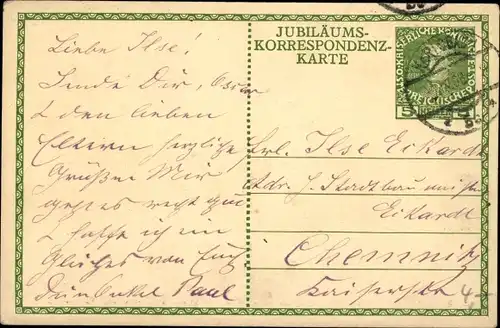 JUBILÄUMS-
KORRESPONDENZ-
KARTE
Liebe Ilse!
Sende Dir,
& den lieben
Eltern herzliche
Grüße. Mir
geht es recht gut
& hoffe ich ein
Gleiches von Euch
Dein Onkel Paul
Frl. Ilse Eckardt
Adr. H. Stadtbaumeister
Eckardt
Chemnitz
Kaiserstr. 4